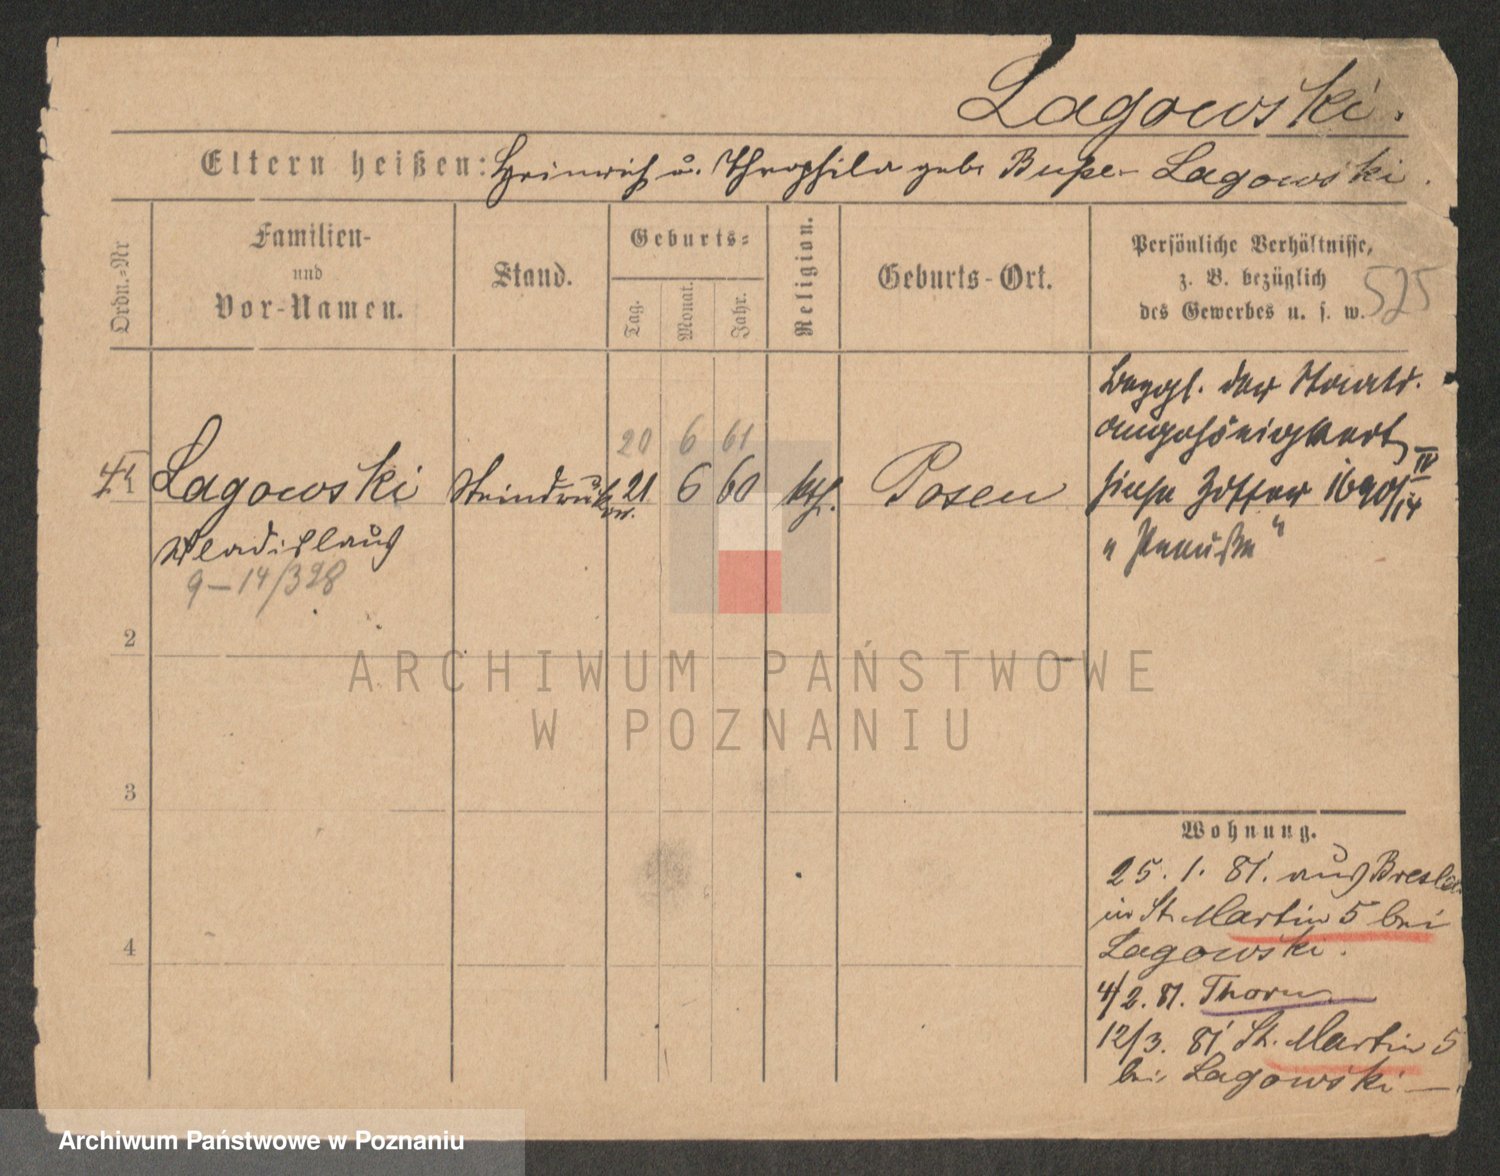 Lagowski.
Eltern heißen: Heinrich u. Theophila geb. Buße- Lagowski.
Ordn.=Nr
Familien-
und
Vor-Namen.
Stand.
Geburts=
Tag.
Monat.
Jahr.
Religion.
Geburts-Ort.
Persönliche Verhältnisse,
z. B. bezüglich
des Gewerbes u. s. w.
525
20 6 61
Lagowski Steindrucker. 21 6 60 kth. Posen
Wladislaus
9-14/328
Bezgl. der Staats-
angehörigkeit
siehe Ziffer 1690/14 IV
" Preuße "
2
3
4
Wohnung.
25. 1. 81. aus Breslau
in St. Martin 5 bei
Lagowski.
4/2. 81. Thorn
12/3. 81 St. Martin 5
bei Lagowski -
ARCHIWUM PAŃSTWOWE
W POZNANIU
Archiwum Państwowe w Poznaniu